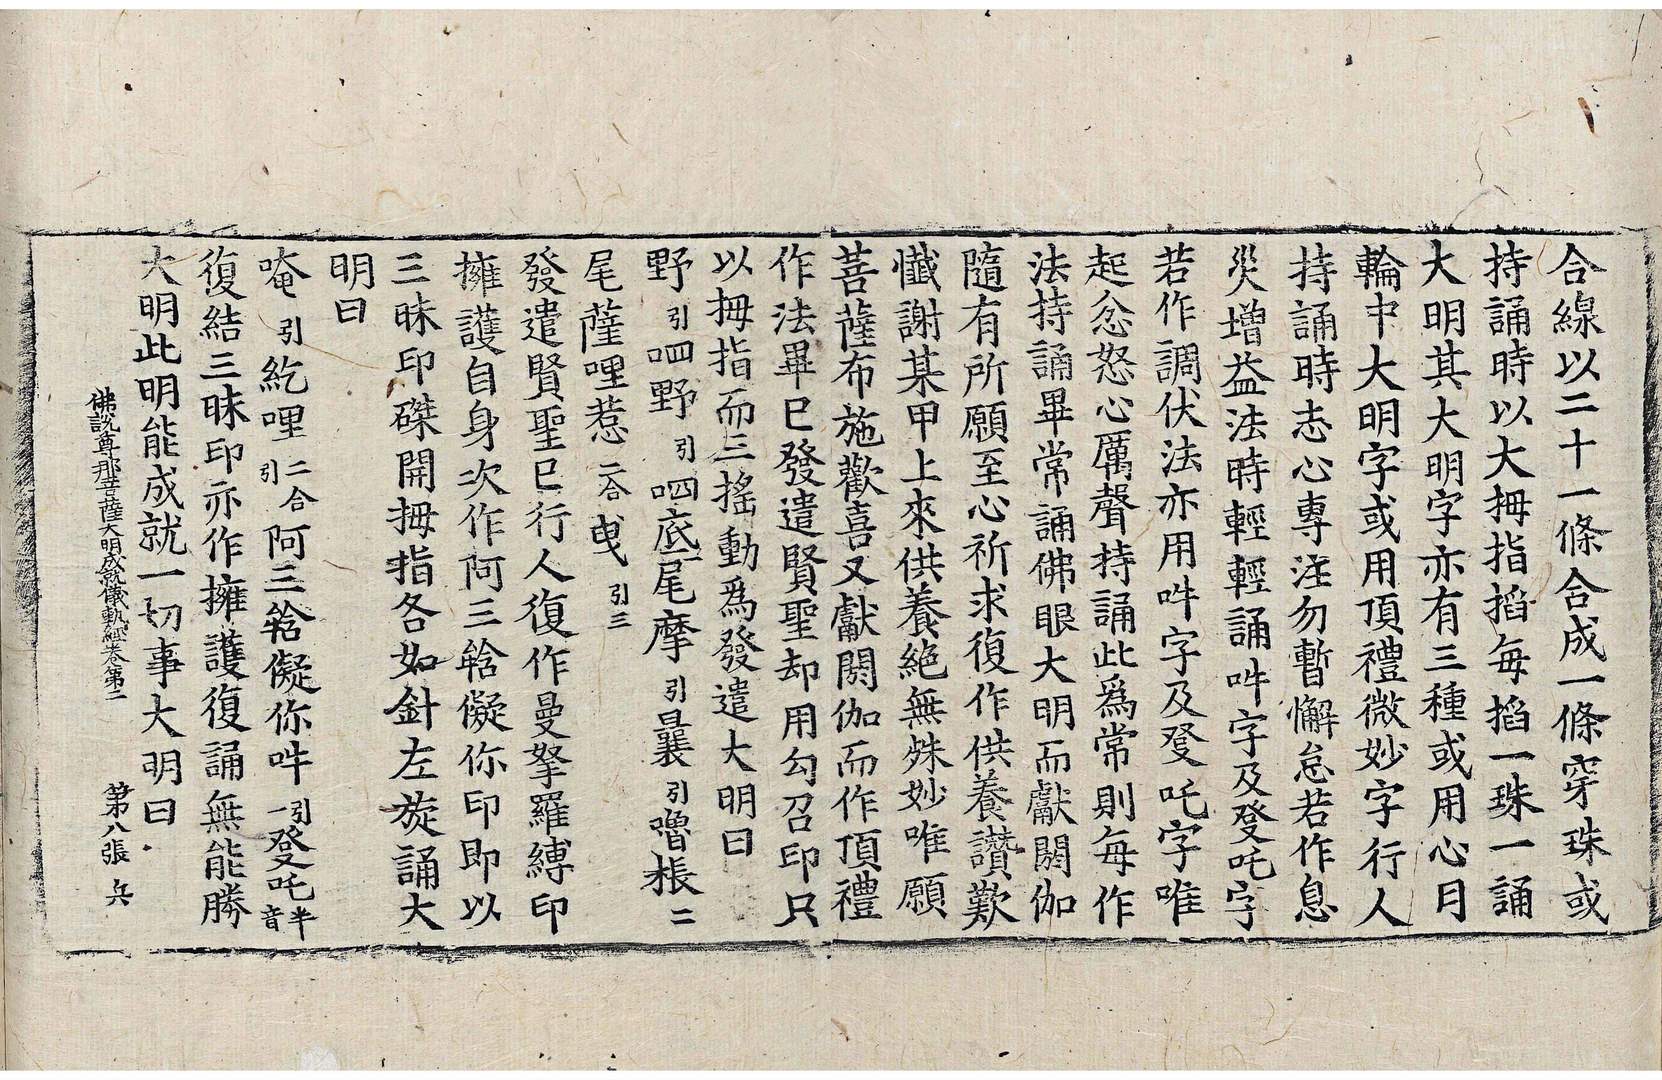 合線以二十一條合成一條穿珠或
持誦時以大拇指掐每掐一珠一誦
大明其大明字亦有三種或用心月
輪中大明字或用頂禮微妙字行人
持誦時志心專注勿暫懈怠若作息
災增益法時輕輕誦吽字及癹吒字
若作調伏法亦用吽字及癹吒字唯
起忿怒心厲聲持誦此爲常則每作
法持誦畢常誦佛眼大明而獻閼伽
隨有所願至心祈求復作供養讚歎
懺謝某甲上來供養絶無殊妙唯願
菩薩布施歡喜又獻閼伽而作頂禮
作法畢已發遣賢聖却用勾召印只
以拇指而三搖動爲發遣大明曰
野引呬野引呬底一尾摩引曩引嚕枨二
尾薩哩惹二合曳引三
發遣賢聖已行人復作曼拏羅縛印
擁護自身次作阿三䈫儗你印即以
三昧印磔開拇指各如針左旋誦大
明曰
唵引紇哩二合引阿三䈫儗你吽引一癹吒半音
復結三昧印亦作擁護復誦無能勝
大明此明能成就一切事大明曰
佛說尊那菩薩大明成就儀軌經卷第二 第八張 兵